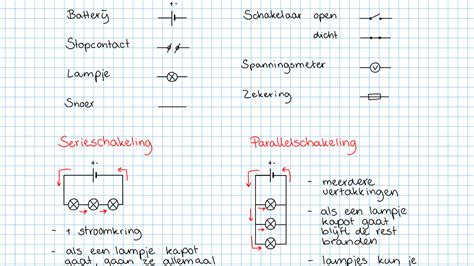 Batterij
Stopcontact
Lampje
Snoer
Schakelaar open
dicht
Spanningsmeter
V
Zekering
Serieschakeling
- 1 stroomkring
- als een lampje kapot
gaat, gaan ze allemaal
Parallelschakeling
- meerdere
vertakkingen
- als een lampje
kapot gaat
blijft de rest
branden
- lampjes kun je